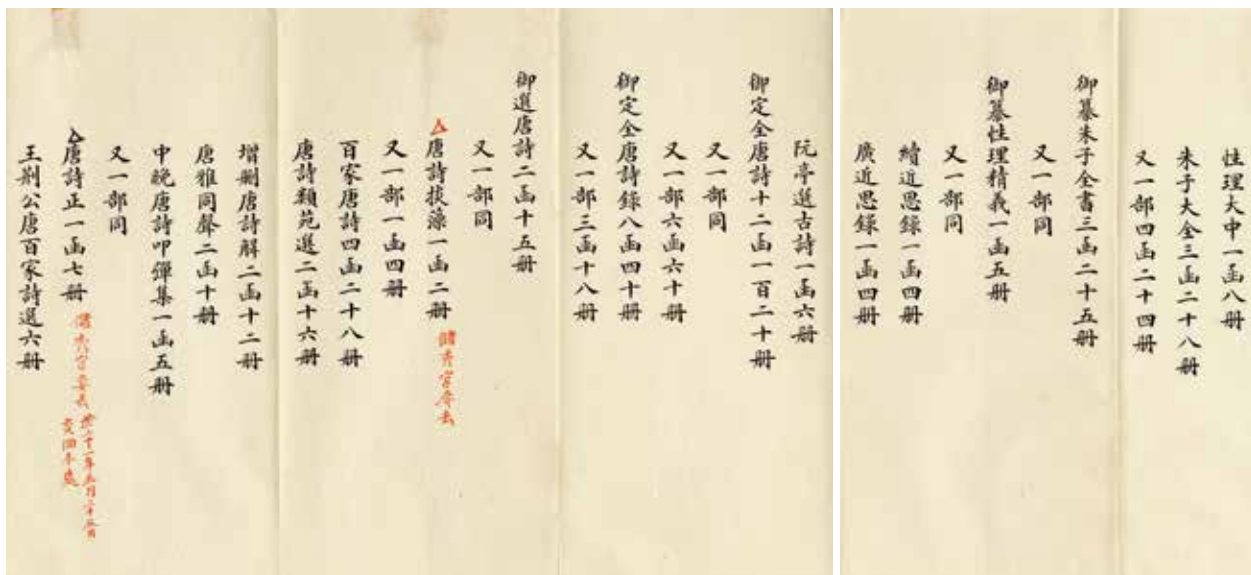 性理大中一函八册
朱子大全三函二十八册
又一部四函二十四册
御纂朱子全書三函二十五册
又一部同
御纂性理精義一函五册
又一部同
續近思錄一函四册
廣近思錄一函四册
阮亭選古詩一函六册
御定全唐詩十二函一百二十册
又一部同
又一部六函六十册
御定全唐詩錄八函四十册
又一部三函十八册
御選唐詩二函十五册
又一部同
△唐詩掞藻一函二册 儲秀宮要去
又一部一函四册
百家唐詩四函二十八册
唐詩類苑選二函十六册
增删唐詩解二函十二册
唐雅同聲二函十册
中晚唐詩叩彈集一函五册
又一部同
△唐詩正一函七册 儲秀宮要去
年五月二十五日
交回本處
王荆公唐百家詩選六册